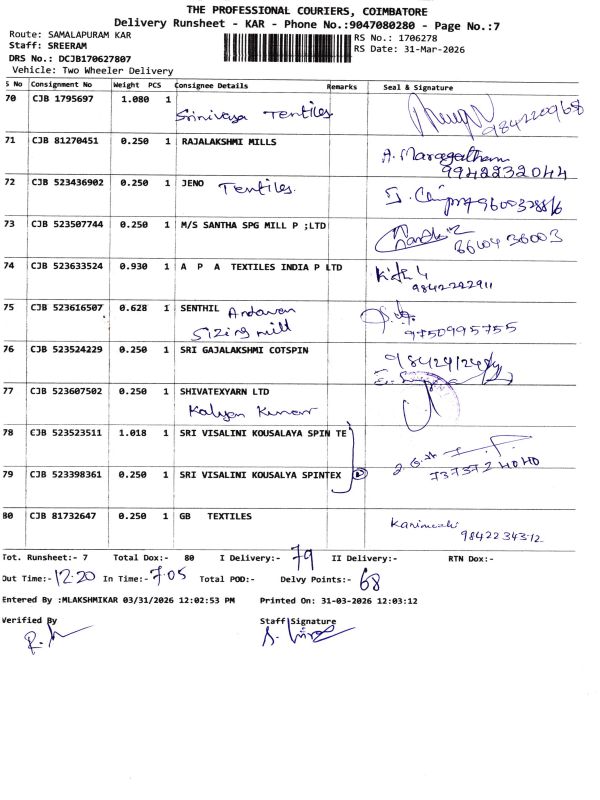 THE PROFESSIONAL COURIERS, COIMBATORE
Delivery Runsheet - KAR - Phone No.:9047080280 - Page No.:7
Route: SAMALAPURAM KAR
RS No.: 1706278
Staff: SREERAM
RS Date: 31-Mar-2026
DRS No.: DCJB170627807
Vehicle: Two Wheeler Delivery
S No Consignment No Weight PCS Consignee Details Remarks Seal & Signature
70 CJB 1795697 1.080 1 Srinivasa Textiles
71 CJB 81270451 0.250 1 RAJALAKSHMI MILLS
A. Maragatham
9942232044
72 CJB 523436902 0.250 1 JENO Textiles.
73 CJB 523507744 0.250 1 M/S SANTHA SPG MILL P ;LTD
74 CJB 523633524 0.930 1 A P A TEXTILES INDIA P LTD
9842242911
75 CJB 523616507 0.628 1 SENTHIL Andavan
Sizing mill
9750995755
76 CJB 523524229 0.250 1 SRI GAJALAKSHMI COTSPIN
77 CJB 523607502 0.250 1 SHIVATEXYARN LTD
Kalyan Kumar
78 CJB 523523511 1.018 1 SRI VISALINI KOUSALAYA SPIN TE
79 CJB 523398361 0.250 1 SRI VISALINI KOUSALYA SPINTEX
80 CJB 81732647 0.250 1 GB TEXTILES
9842234312
Tot. Runsheet:- 7 Total Dox:- 80 I Delivery:- 79 II Delivery:- RTN Dox:-
Out Time:- 12.20 In Time:- 7.05 Total POD:- Delvy Points:- 68
Entered By :MLAKSHMIKAR 03/31/2026 12:02:53 PM Printed On: 31-03-2026 12:03:12
Verified By Staff Signature